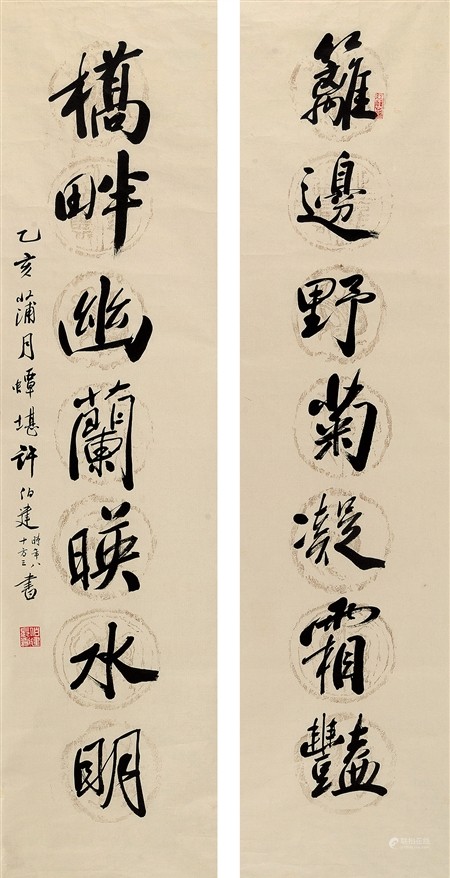 籬邊野菊凝霜豔
橋畔幽蘭暎水明
乙亥蒲月蟫堪許伯建時年八十有三書